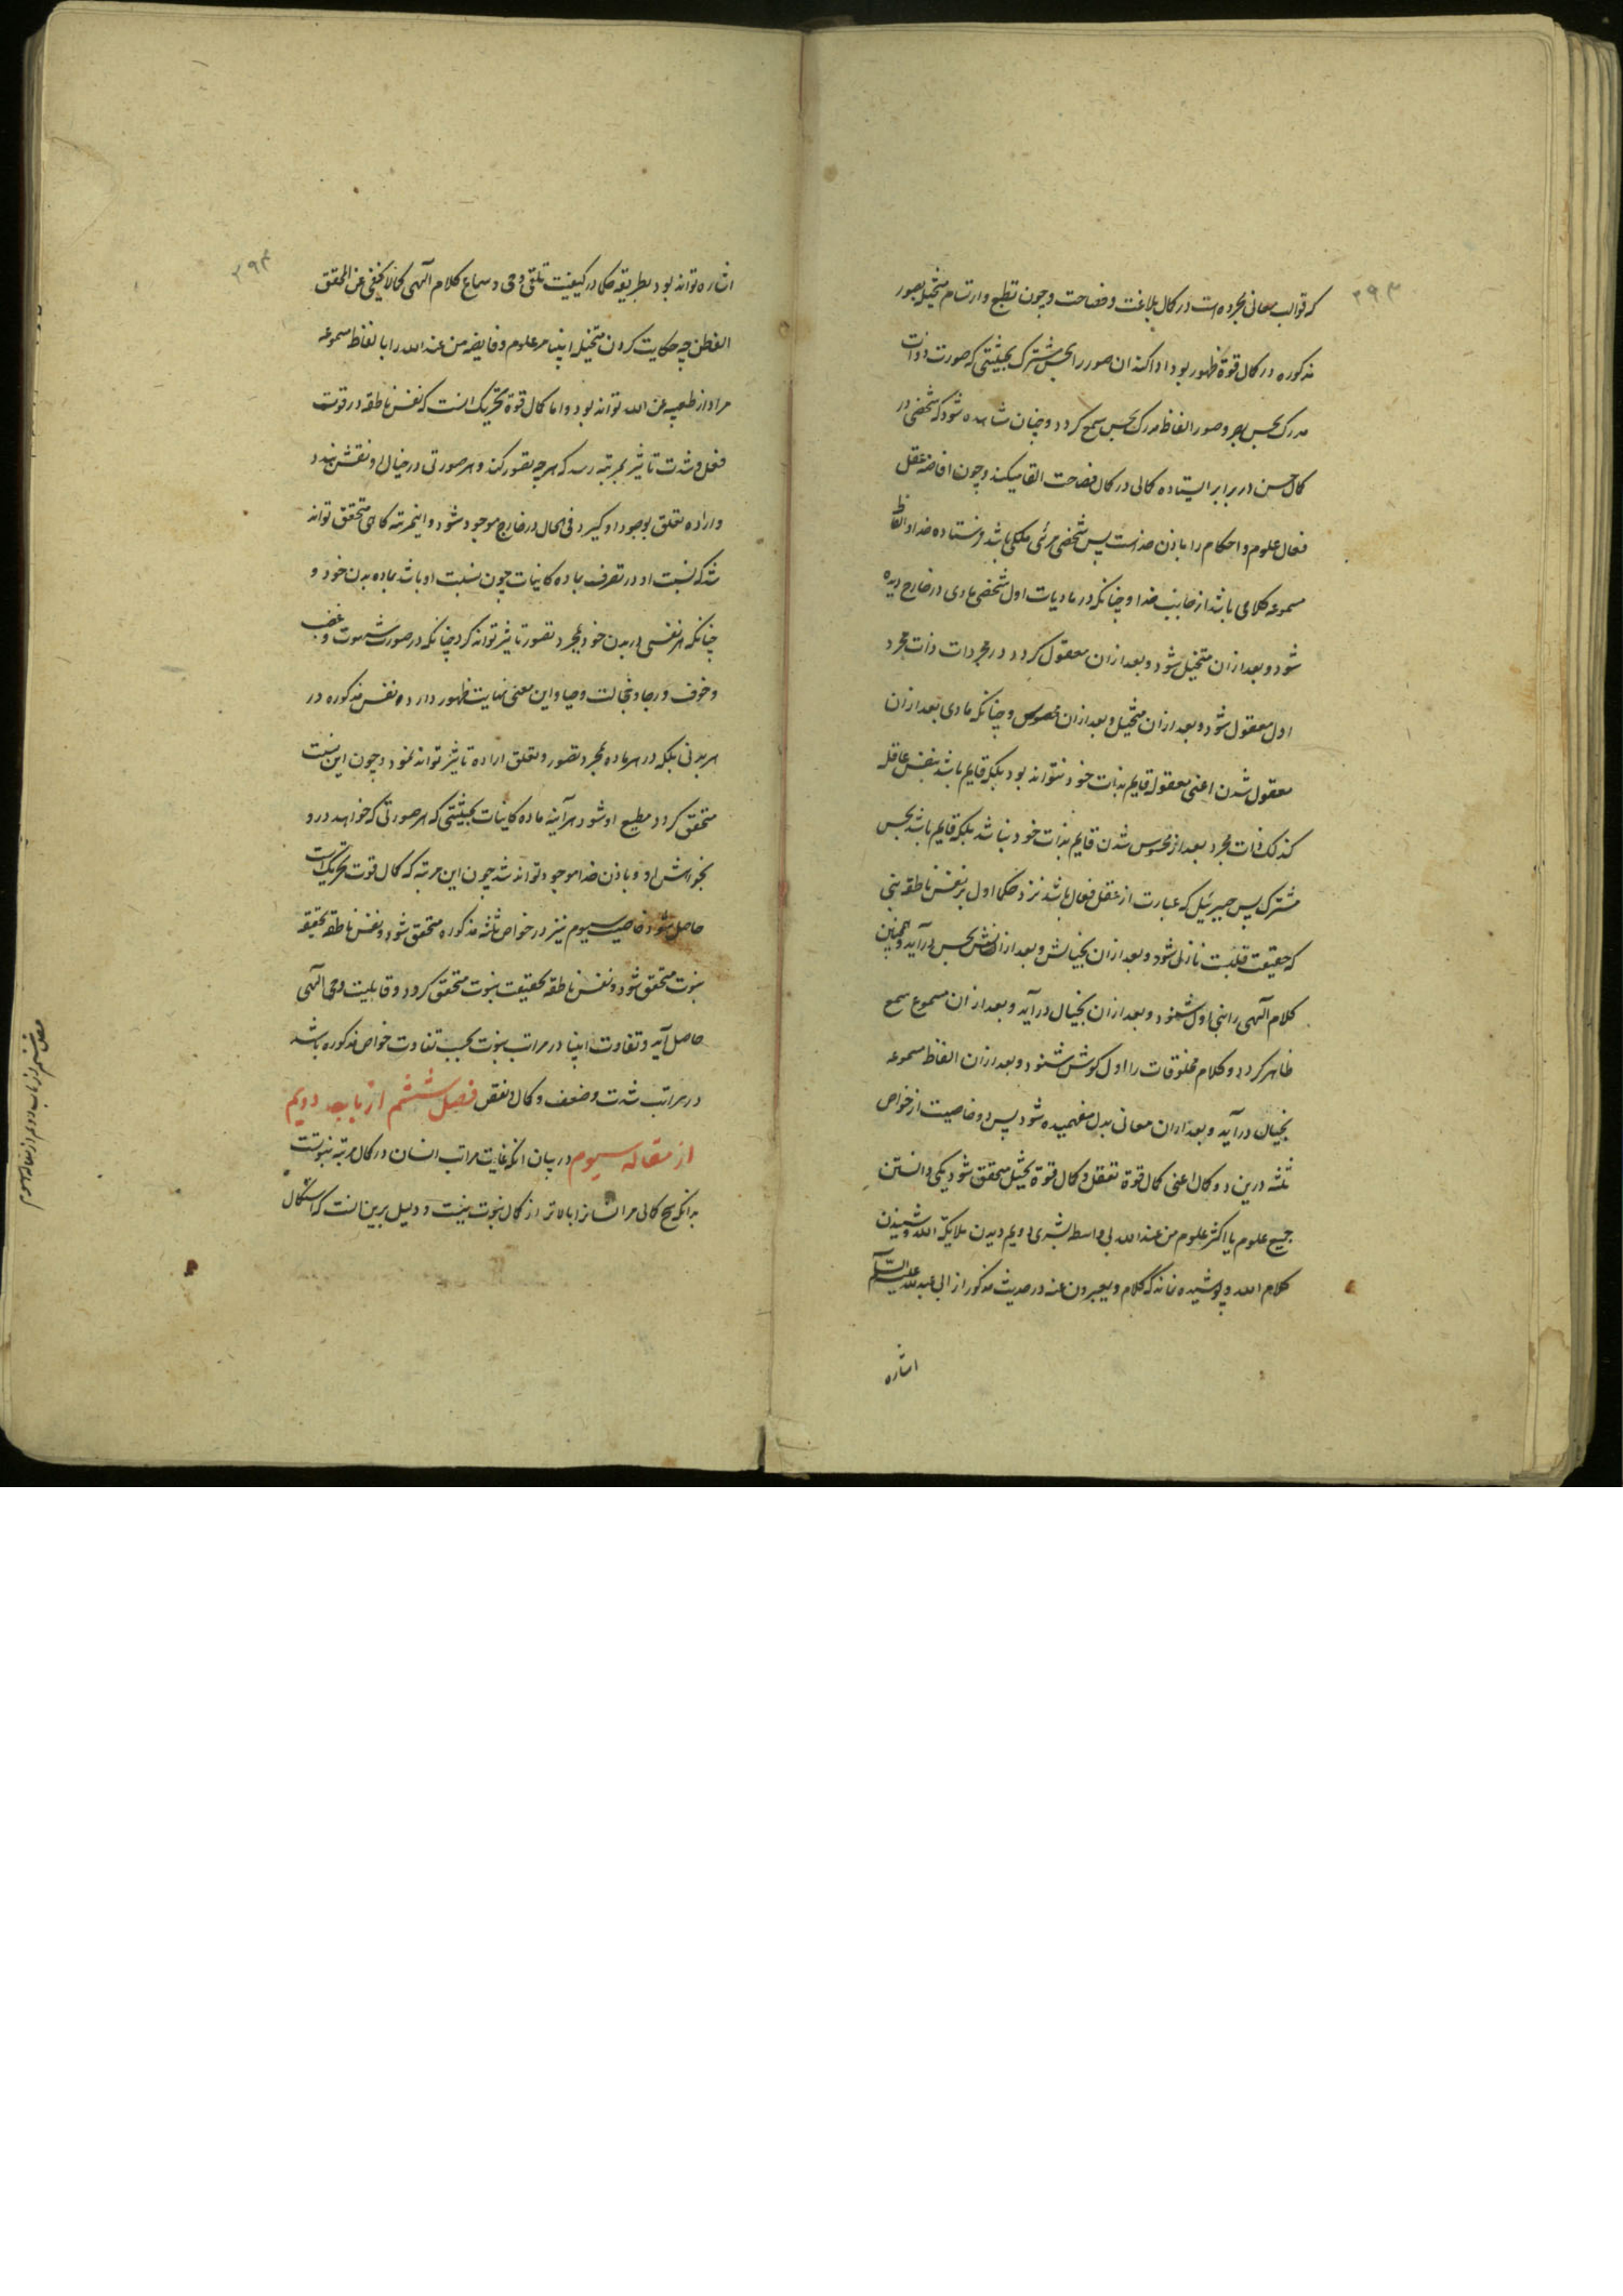 ۲۹۳
که قوالب معانی مجرده است در کمال بلاغت و فصاحت و چون تطبع و ارتسام متخیله بصور
مذکوره در کمال قوة ظهور بود ادا کند ان صور را بحس مشترک بحیثیتی که صورت ذوات
مدرک بحس بصر و صور الفاظ مدرک بحس سمع کردد و چنان مشاهده شود که شخصی در
کمال حسن در برابر ایستاده کلامی در کمال فصاحت القا میکند و چون افاضه عقل
فعال علوم و احکام را باذن خداست پس شخص مرئی ملکی باشد فرستاده خدا و الفاظ
مسموعه کلامی باشد از جانب خدا و چنانکه در مادیات اول شخصی مادی در خارج دیده
شود و بعد ازان متخیل شود و بعد ازان معقول کردد در مجردات ذات مجرد
اول معقول شود و بعد ازان متخیل و بعد ازان محسوس و چنانکه مادی بعد ازان
معقول شدن اعنی معقوله قایم بذات خود نتواند بود بلکه قایم باشد بنفس عاقله
کذلک ذات مجرد بعد از محسوس شدن قایم بذات خود نباشد بلکه قایم باشد بحس
مشترک پس جبرئیل که عبارت از عقل فعال باشد نزد حکما اول بر نفس ناطقه نبی
که حقیقت قلبست نازل شود و بعد ازان بخیالش و بعد ازان بحسش درآید و همچنین
کلام الهی را نبی اول شنود و بعد ازان بخیال درآید و بعد ازان مسموع سمع
ظاهر کردد و کلام مخلوقات را اول کوش شنود و بعد ازان الفاظ مسموعه
بخیال درآید و بعد ازان معانی بدل مفهمیده شود پس دو خاصیت از خواص
ثلثه درین دو کمال اعنی کمال قوة تعقل و کمال قوة تخیل متحقق شود یکی دانستن
جمیع علوم یا اکثر علوم من عند الله بی واسط بشری دویم دیدن ملایکة الله و شنیدن
کلام الله و پوشیده نماند که کلام و یعبرون عنه در حدیث مذکور از ابی عبد الله علیه السلام
اشاره
۲۹۴
اشاره تواند بود بطریقه حکما در کیفیت تلقی وحی و سماع کلام الهی کما لا یخفی عن المحقق
الفطن چه حکایت کردن متخیله انبیا مر علوم فایضه من عند الله را بالفاظ مسموعه
مراد از تعبیر عن الله تواند بود و اما کمال قوة تحریک انست که نفس ناطقه در قوت
فعل و شدت تاثیر بمرتبه رسد که هر چه تصور کند و هر صورتی در خیال او نقش بندد
و اراده تعلق بوجود او کیرد فی الحال در خارج موجود شود و اینمرتبه کاهی متحقق تواند
شد که نسبت او در تصرف بماده کاینات چون نسبت او باشد بماده بدن خود و
چنانکه هر نفسی در بدن خود بمجرد تصور تاثیر تواند کرد چنانکه در صورت شهوت و غضب
و خوف و رجا و خجالت و حیا و این معنی نهایت ظهور دارد نفس مذکوره در
هر بدنی بلکه در هر ماده بمجرد تصور و تعلق اراده تاثیر تواند نمود و چون این نسبت
متحقق کردد مطیع او شود هر آینه ماده کاینات بحیثیتی که هر صورتی که خواهد در و
بخواهش او و باذن خدا موجود تواند شد چون این مرتبه که کمال قوت تحریکست
حاصل شود خاصیت سیوم نیز در خواص ثلثه مذکوره متحقق شود و نفس ناطقه بحقیقة
نبوت متحقق شود و نفس ناطقه بحقیقت نبوت متحقق کردد و قابلیت وحی الهی
حاصل آید و تفاوت انبیا در مراتب نبوت بحسب تفاوت خواص مذکوره باشد
در مراتب شدت و ضعف و کمال و نقص فصل ششم از باب دویم
از مقاله سیوم در بیان انکه غایت مراتب انسان در کمال مرتبه نبوتست
بدانکه هیچ کمالی مر انسانرا بالاتر از کمال نبوت نیست و دلیل برین انست که استکمال
فصل ششم از باب دویم از مقاله سیوم